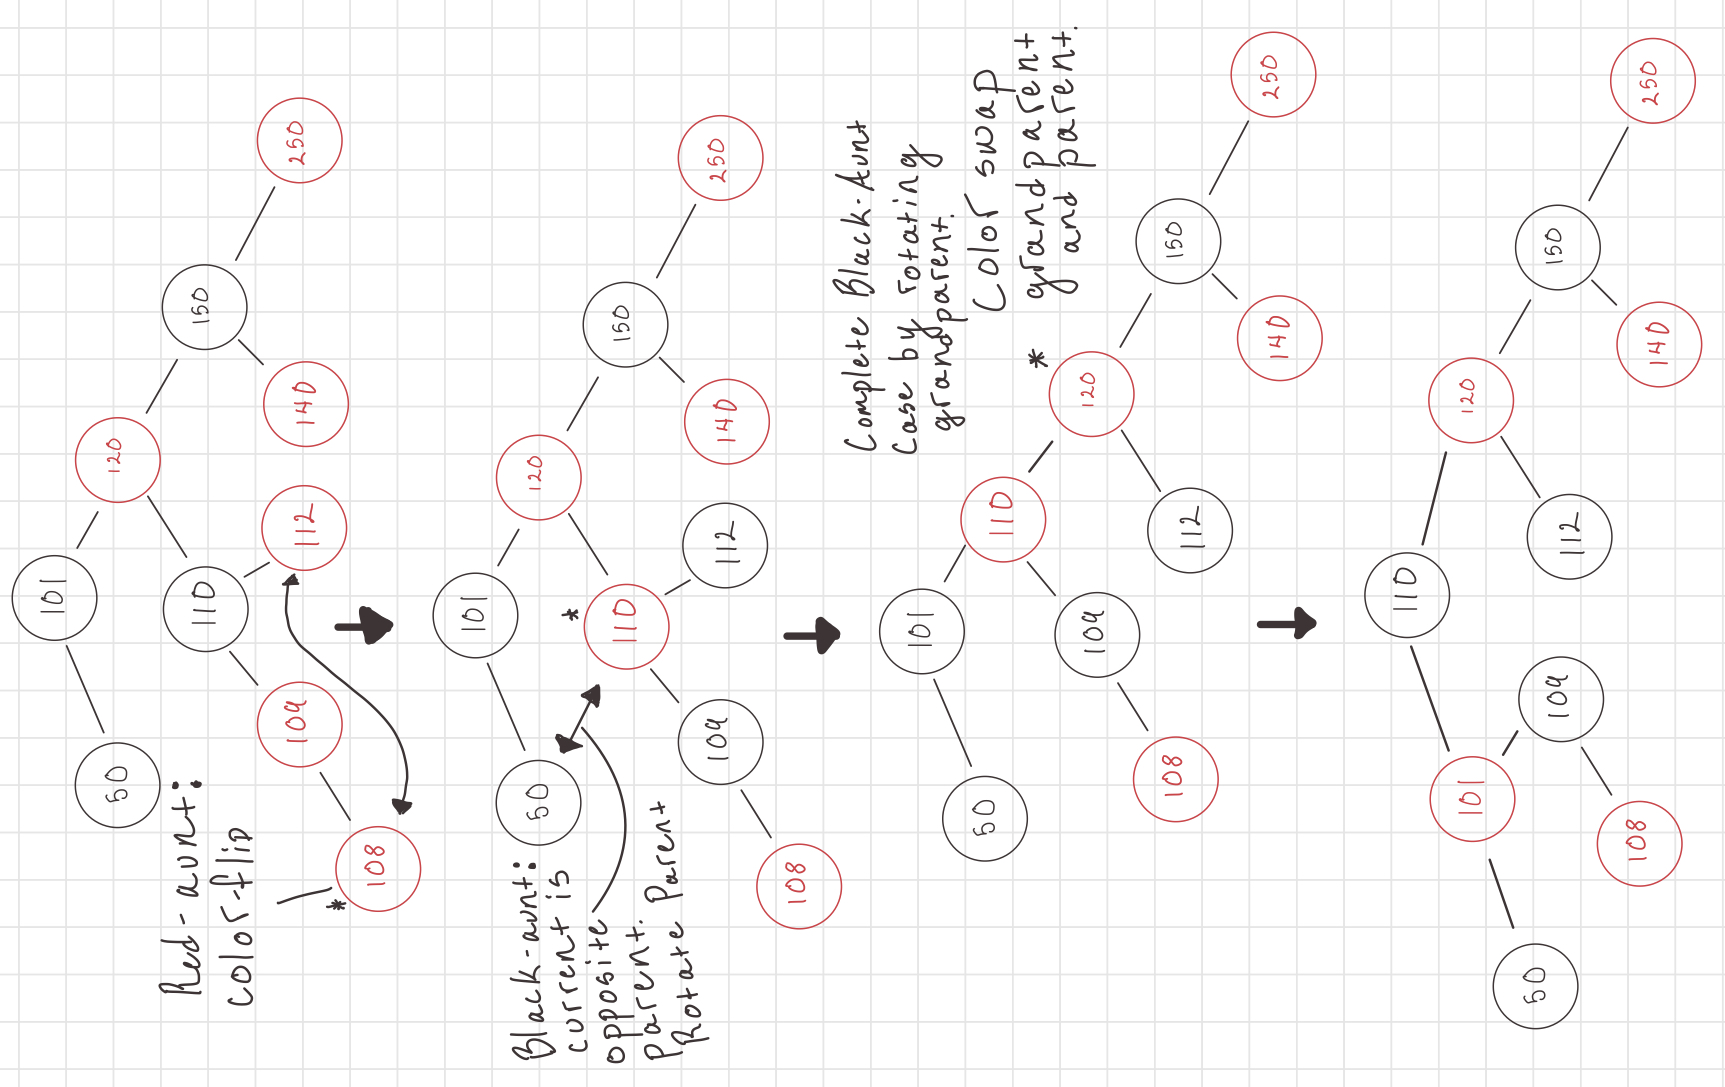 101
50
120
Red-aunt:
color-flip
110
150
109
112
140
250
*
108
101
50
120
Black-aunt:
current is
opposite
parent.
Rotate Parent
*
110
150
109
112
140
250
108
Complete Black-Aunt
Case by rotating
grandparent.
Color swap
grandparent
and parent.
101
50
110
*
109
120
108
112
150
140
250
110
101
120
50
109
112
150
108
140
250